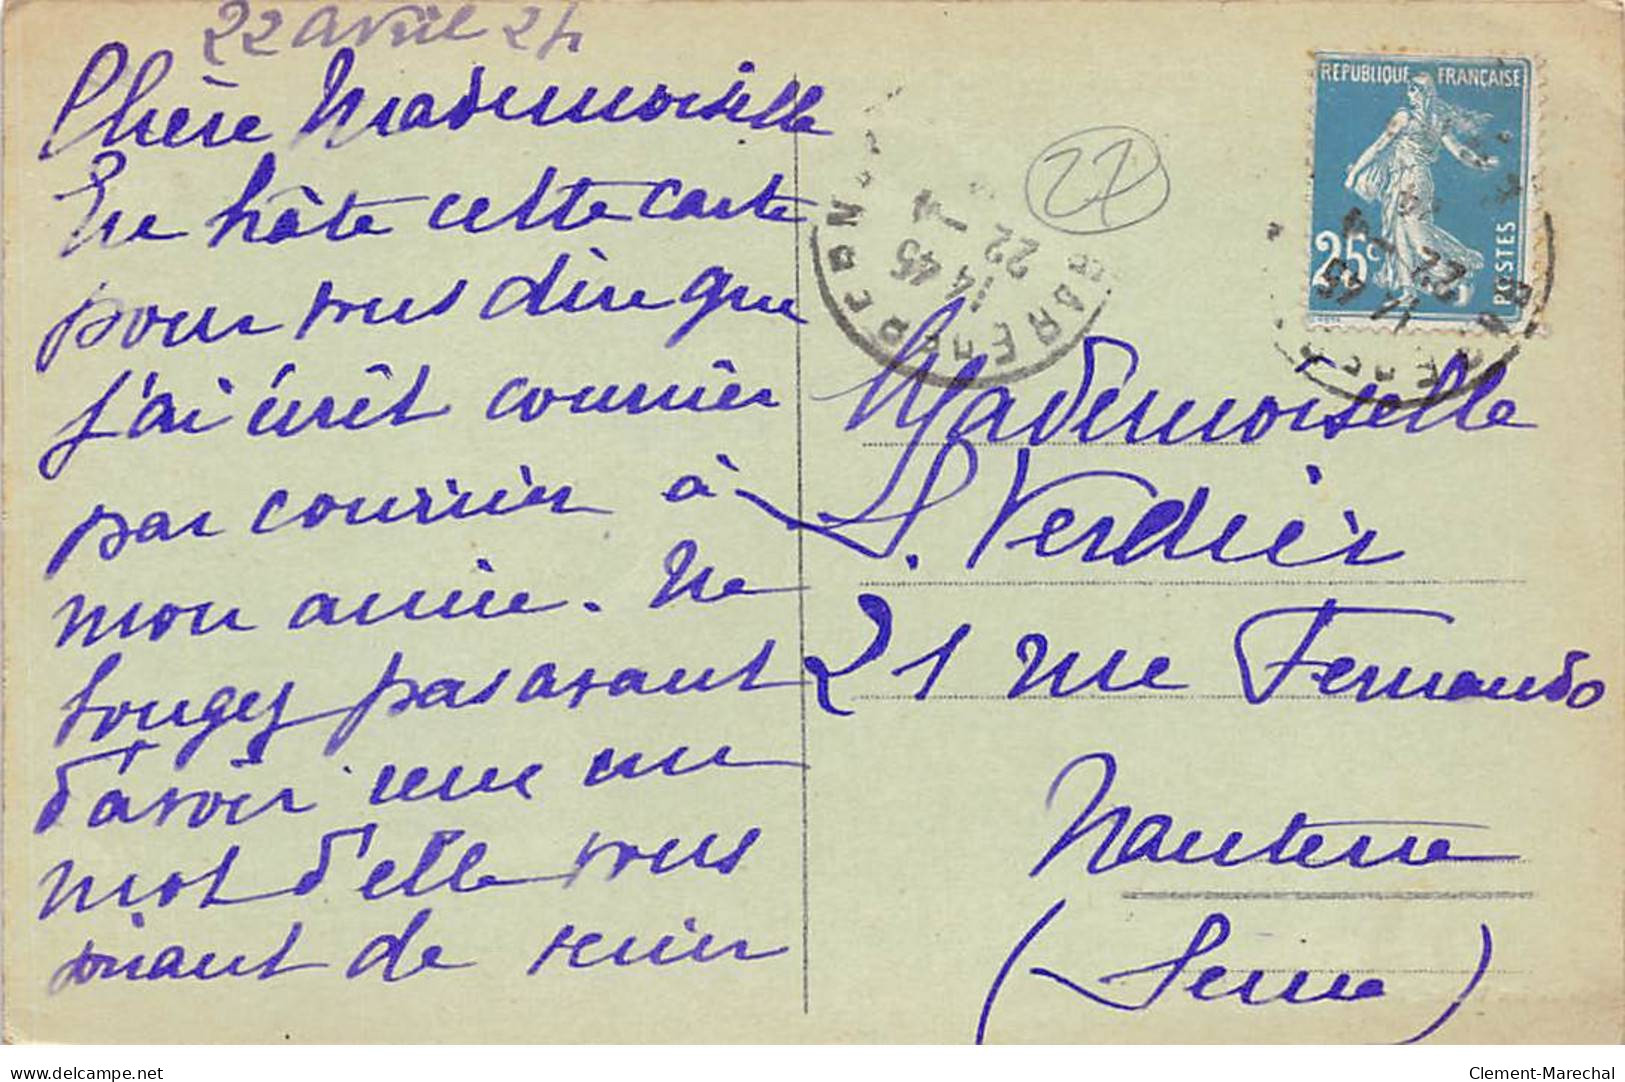 22 avril 24
Chère Mademoiselle
En hâte cette carte
pour vous dire que
j'ai écrit courrier
par courrier à
mon amie. Ne
bougez pas avant
d'avoir reçu un
mot d'elle vous
priant de venir
22
REPUBLIQUE FRANÇAISE
25c
POSTES
14 45
22 - 4
14 45
22 - 4
Mademoiselle
S. Verdier
21 rue Fernando
Nanterre
(Seine)
delcampe.net
Clement-Marechal